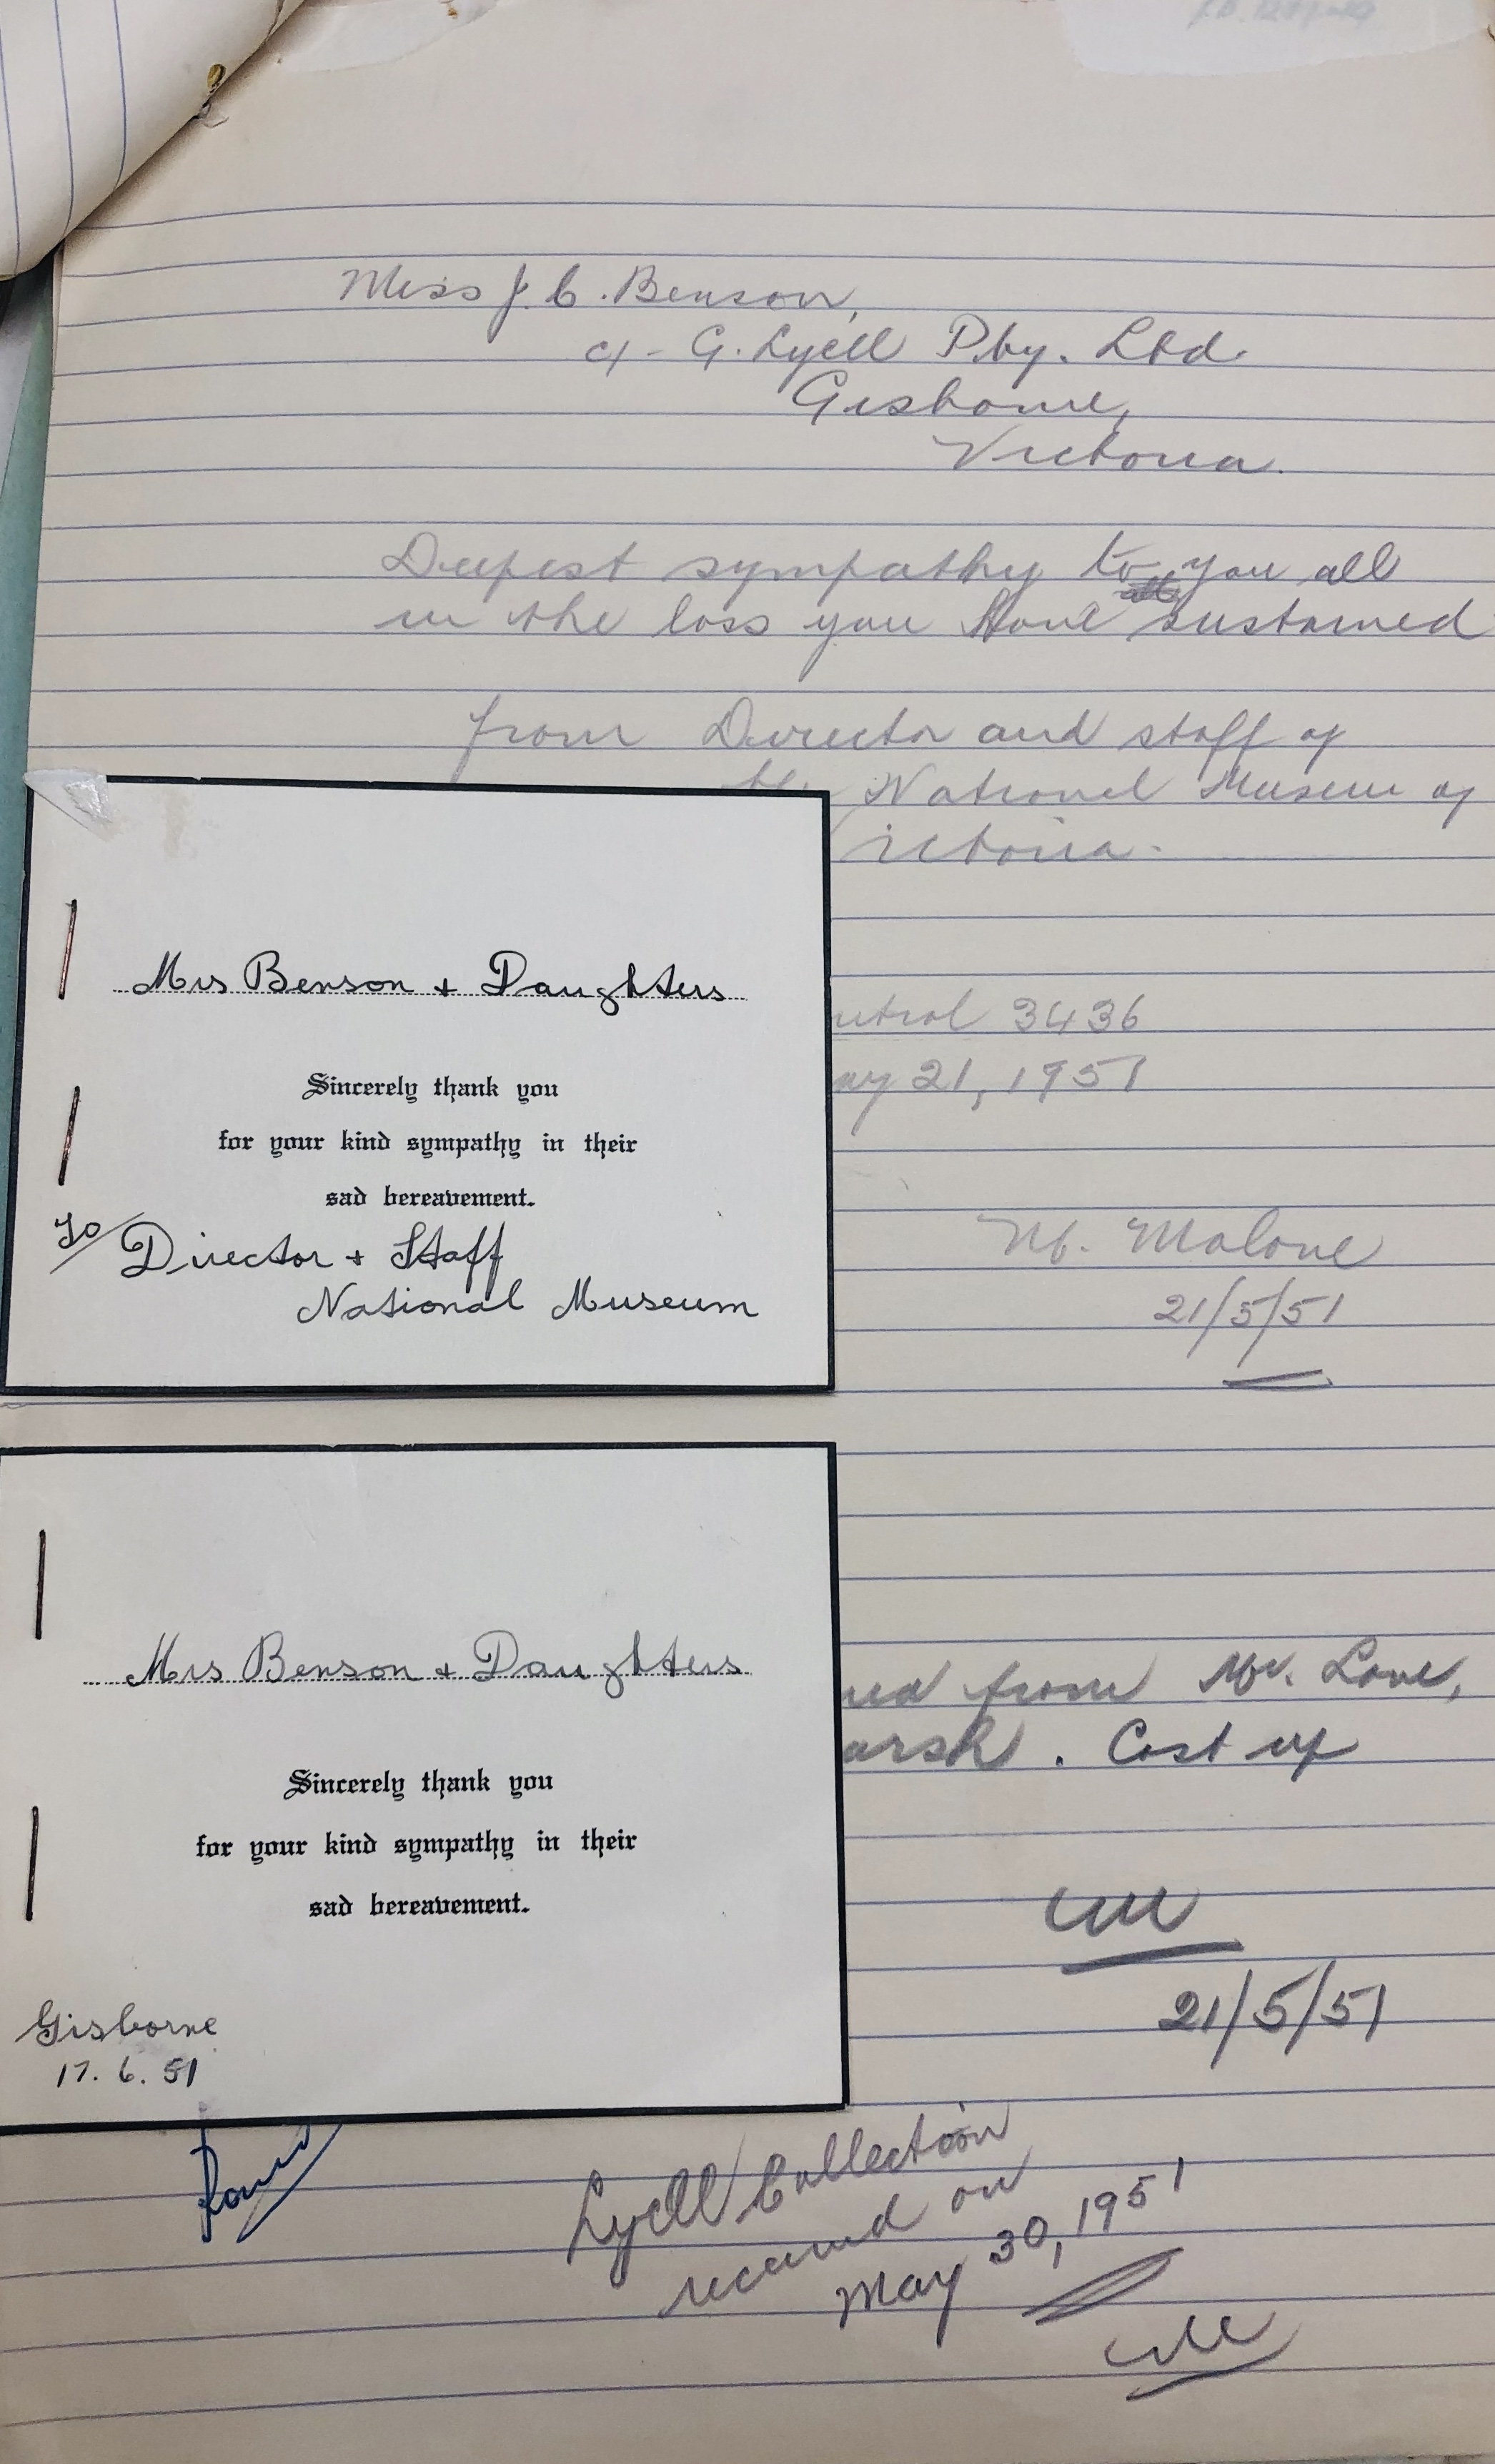 Miss J. C. Benson,
c/- G. Lyell Pty. Ltd.
Gisborne,
Victoria.
Deepest sympathy to you all
in the loss you have sustained
from Director and staff of
the National Museum of
ictoria.
ntral 3436
ay 21, 1951
M. Malone
21/5/51
Mrs Benson + Daughters
Sincerely thank you
for your kind sympathy in their
sad bereavement.
To/ Director + Staff
National Museum
Mrs Benson + Daughters
Sincerely thank you
for your kind sympathy in their
sad bereavement.
Gisborne
17. 6. 51
from Mr. Lane,
arsh. Cost of
21/5/51
Lyell Collection
received on
May 30, 1951